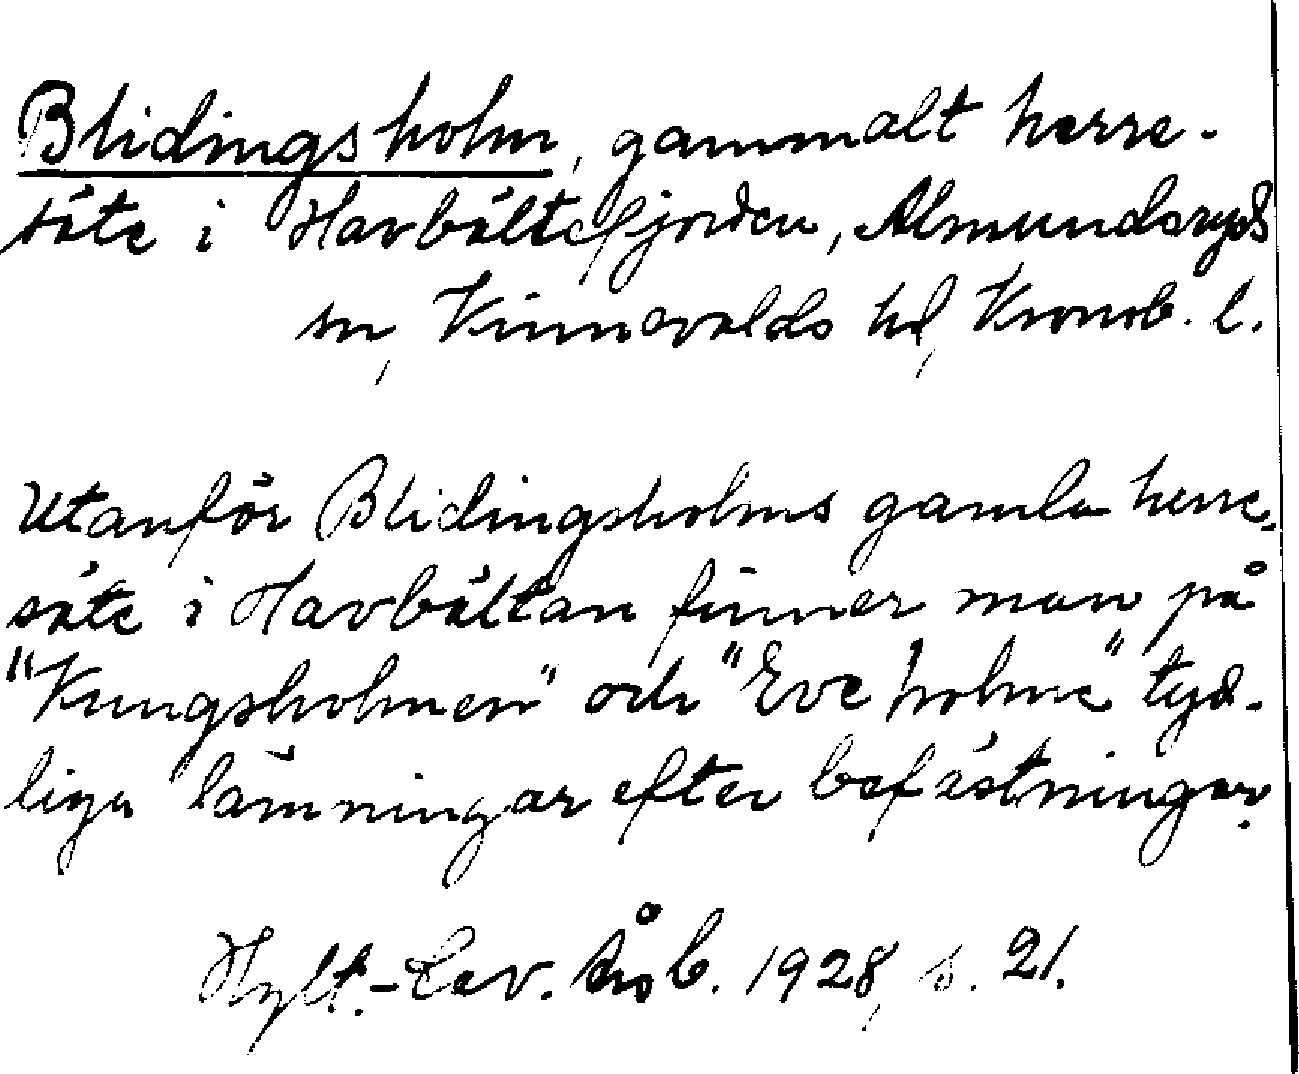 Blidingsholm, gammalt herre-
säte i Havbältefjorden, Almundsryds
sn, Kinnevalds hd, Kronob. l.
Utanför Blidingsholms gamla herre-
säte i Havbältan finner man på
"Kungsholmen" och "Eve holme" tyd-
liga lämningar efter befästningar.
Hylt.-Cav. Årsb. 1928, s. 21.